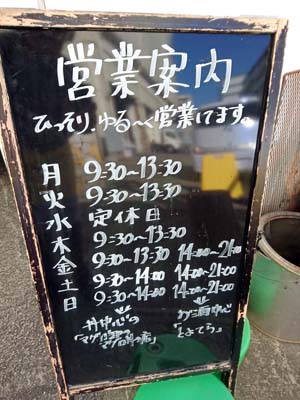 営業案内
ひっそり、ゆる〜く営業してます。
月 9:30〜13:30
火 9:30〜13:30
水 定休日
木 9:30〜13:30
金 9:30〜13:30 14:00〜21:00
土 9:30〜14:00 14:00〜21:00
日 9:30〜14:00 14:00〜21:00
丼中心の